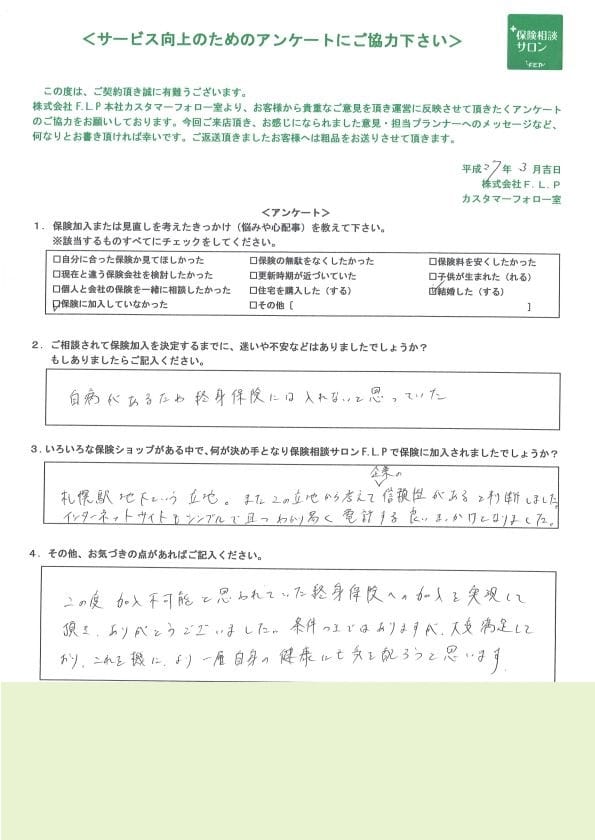 ＜サービス向上のためのアンケートにご協力下さい＞
保険相談
サロン
F.L.P
この度は、ご契約頂き誠に有難うございます。
株式会社F.L.P本社カスタマーフォロー室より、お客様から貴重なご意見を頂き運営に反映させて頂きたくアンケート
のご協力をお願いしております。今回ご来店頂き、お感じになられました意見・担当プランナーへのメッセージなど、
何なりとお書き頂ければ幸いです。ご返送頂きましたお客様へは粗品をお送りさせて頂きます。
平成27年 3月吉日
株式会社F．L．P
カスタマーフォロー室
＜アンケート＞
１．保険加入または見直しを考えたきっかけ（悩みや心配事）を教えて下さい。
※該当するものすべてにチェックをしてください。
□自分に合った保険か見てほしかった □保険の無駄をなくしたかった □保険料を安くしたかった
□現在と違う保険会社を検討したかった □更新時期が近づいていた □子供が生まれた（れる）
□個人と会社の保険を一緒に相談したかった □住宅を購入した（する） ☑結婚した（する）
☑保険に加入していなかった □その他［ ］
２．ご相談されて保険加入を決定するまでに、迷いや不安などはありましたでしょうか？
もしありましたらご記入ください。
自病があるため終身保険には入れないと思っていた
３．いろいろな保険ショップがある中で、何が決め手となり保険相談サロンF.L.Pで保険に加入されましたでしょうか？
札幌駅地下という立地。またこの立地から考えて企業の信頼性があると判断しました。
インターネットサイトもシンプルで且つわかり易く電話する良いきっかけとなりました。
４．その他、お気づきの点があればご記入ください。
この度加入不可能と思われていた終身保険への加入を実現して
頂き、ありがとうございました。条件つきではありますが、大変満足して
おり、これを機に、より一層自身の健康にも気を配ろうと思います。